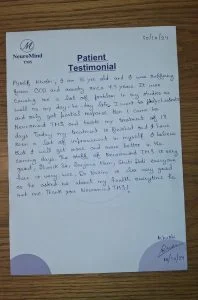 30/10/24
NeuroMind
TMS
Patient
Testimonial
Myself Khushi, I am 18 year old and I was suffering
from OCD and anxiety since 4.5 years. It was
causing me a lot off problem in my studies as
well as my day-to-day life. I went to psychiatrists
and only got partial response. Then I came to
Neuromind TMS and took my treatment of 17
days. Today my treatment is finished and I have
seen a lot of improvement in myself. I believe
that I will get more and more better in the
coming days. The staff of Neuromind TMS is very
good,
everyone
here is very nice. Dr. is also very good
as he asked me about my health everytime he
met me. Thank you Neuromind TMS!
Khushi
30/10/24